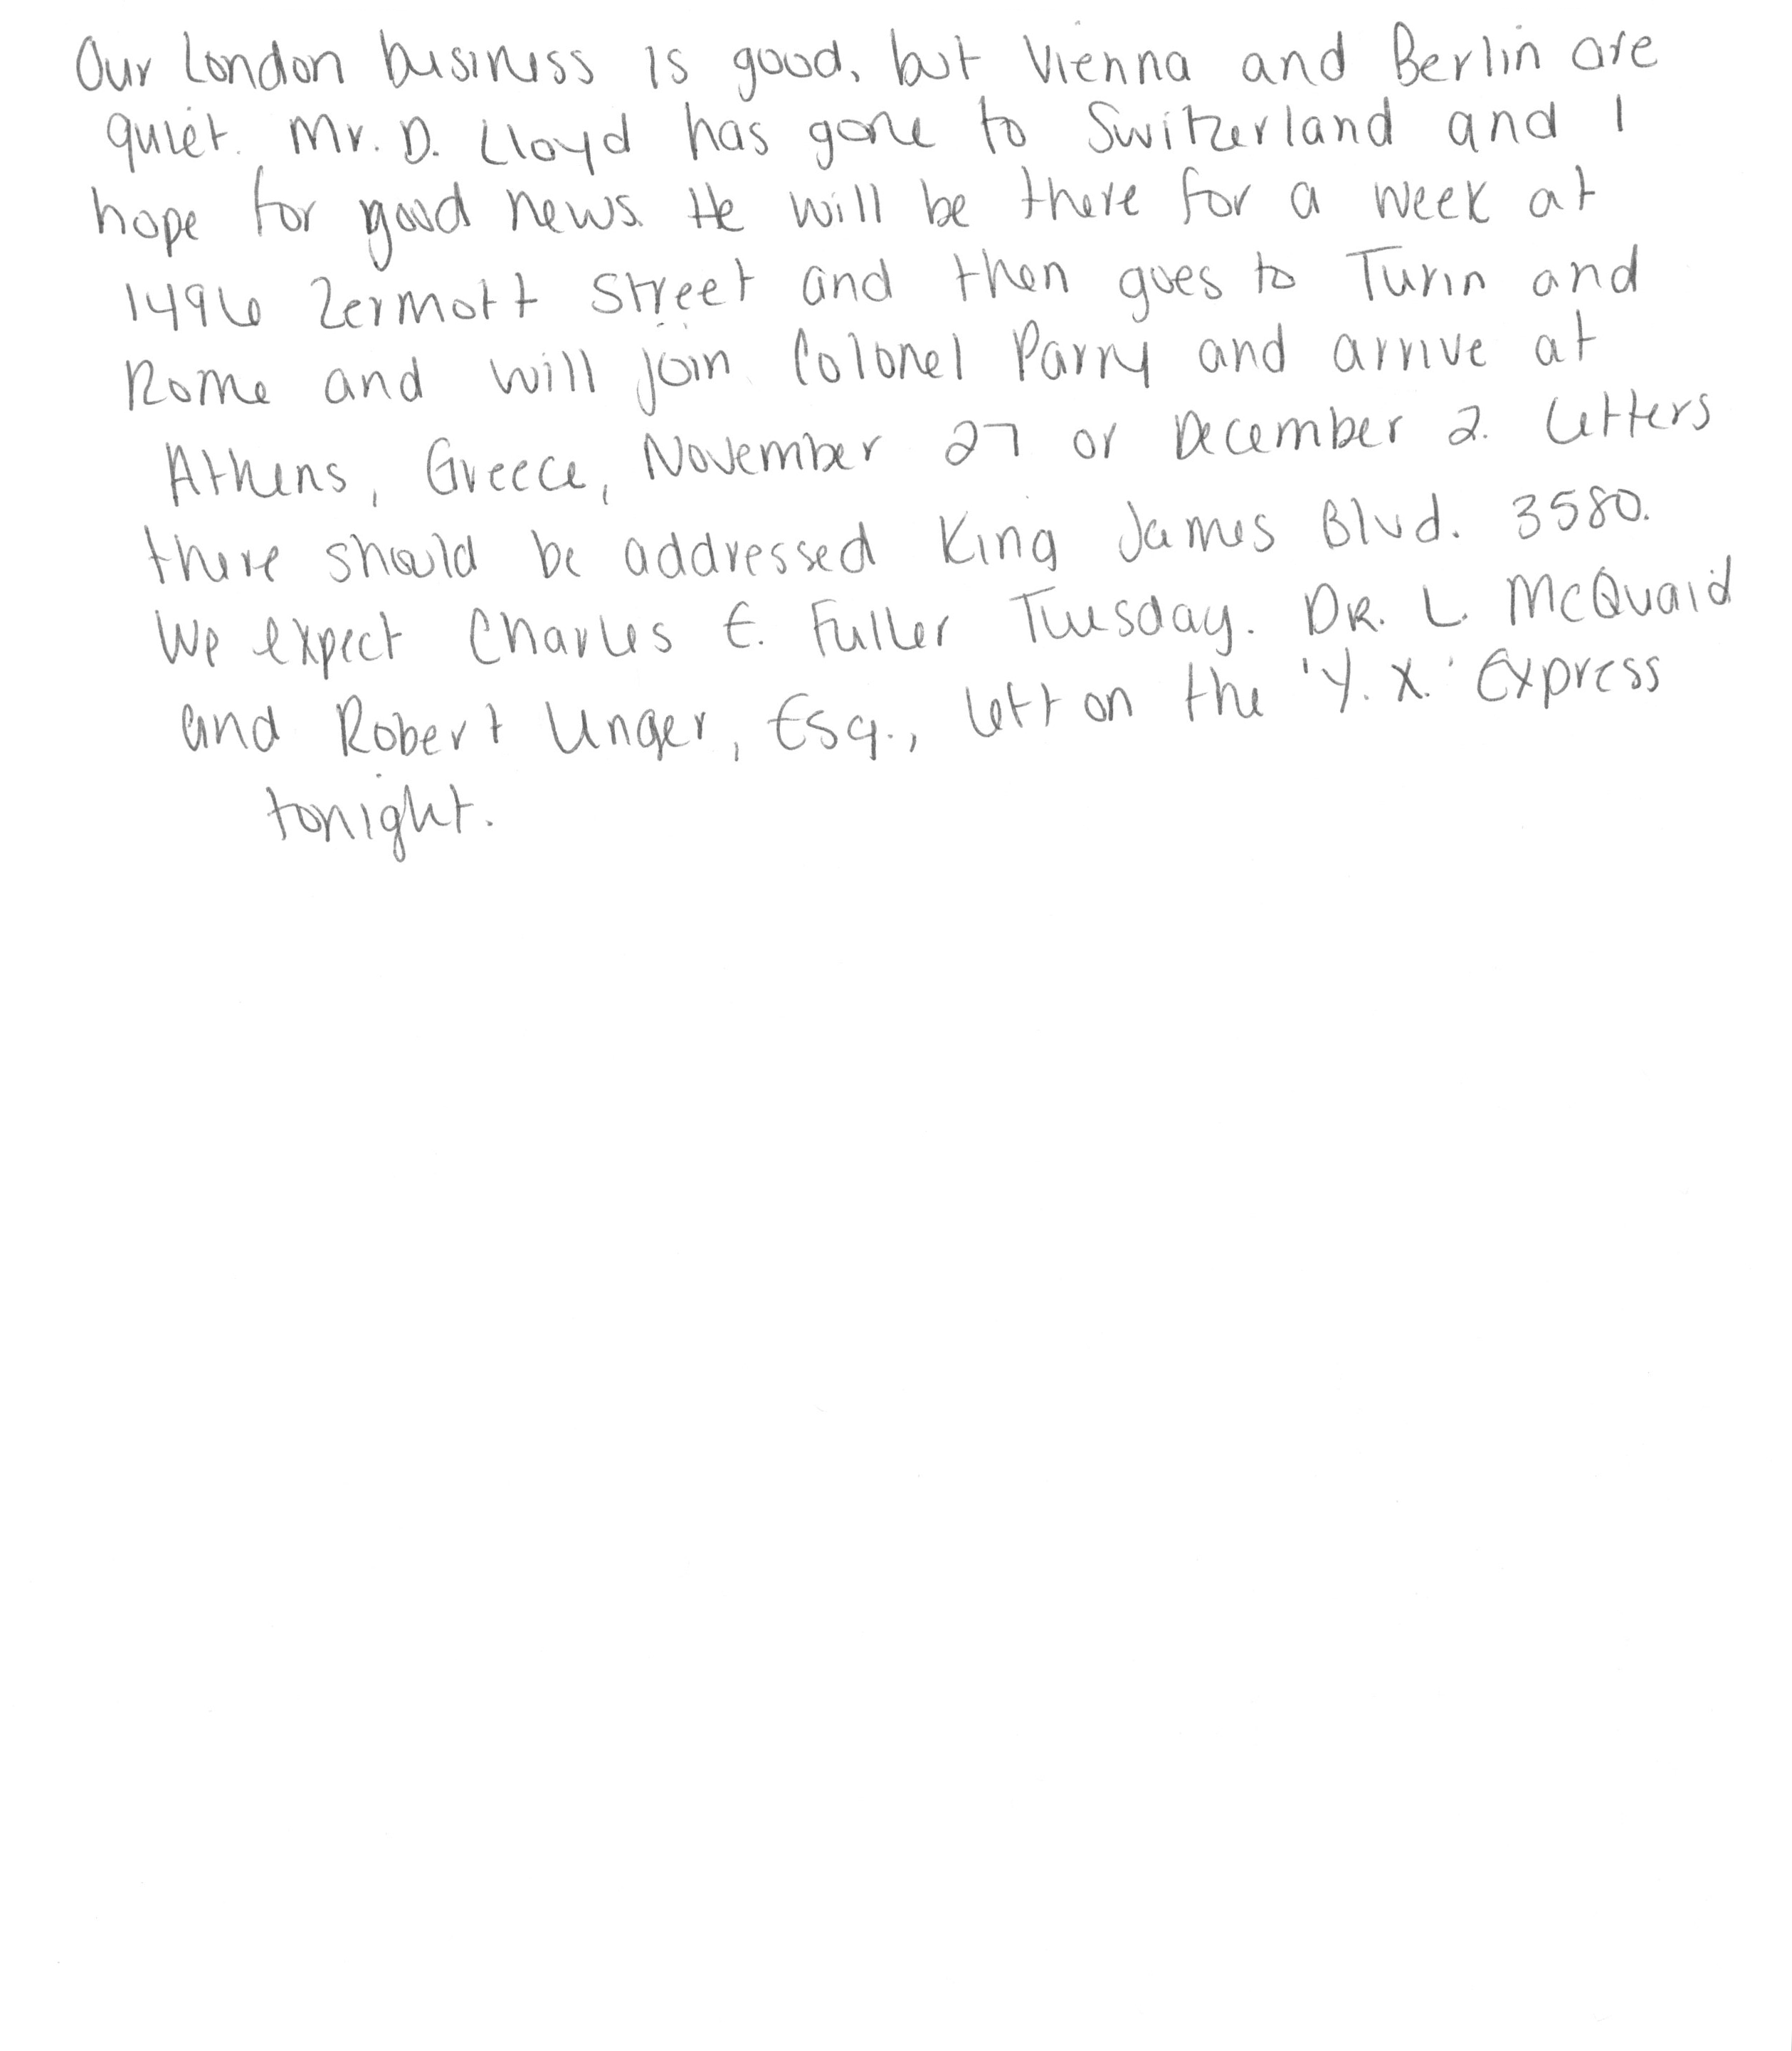 Our London business is good, but Vienna and Berlin are
quiet. Mr. D. Lloyd has gone to Switzerland and I
hope for good news. He will be there for a week at
1496 Zermott Street and then goes to Turin and
Rome and will join Colonel Parry and arrive at
Athens, Greece, November 27 or December 2. Letters
there should be addressed King James Blvd. 3580.
We expect Charles E. Fuller Tuesday. DR. L. McQuaid
and Robert Unger, Esq., left on the 'Y. X.' Express
tonight.